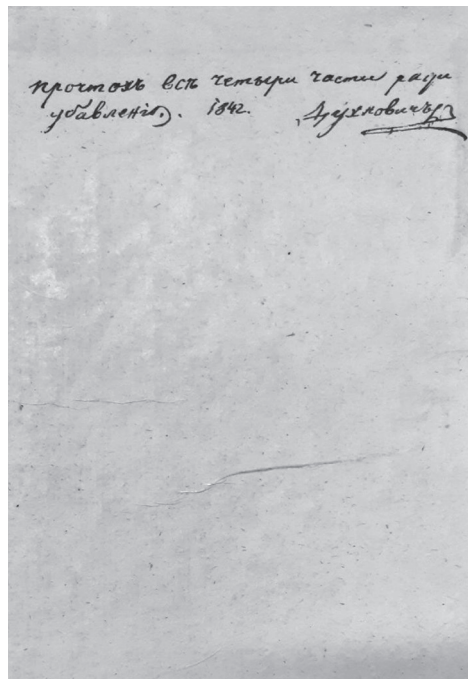 прочтохъ всѣ четыри части ради
убавленія. 1842. Духновичъ